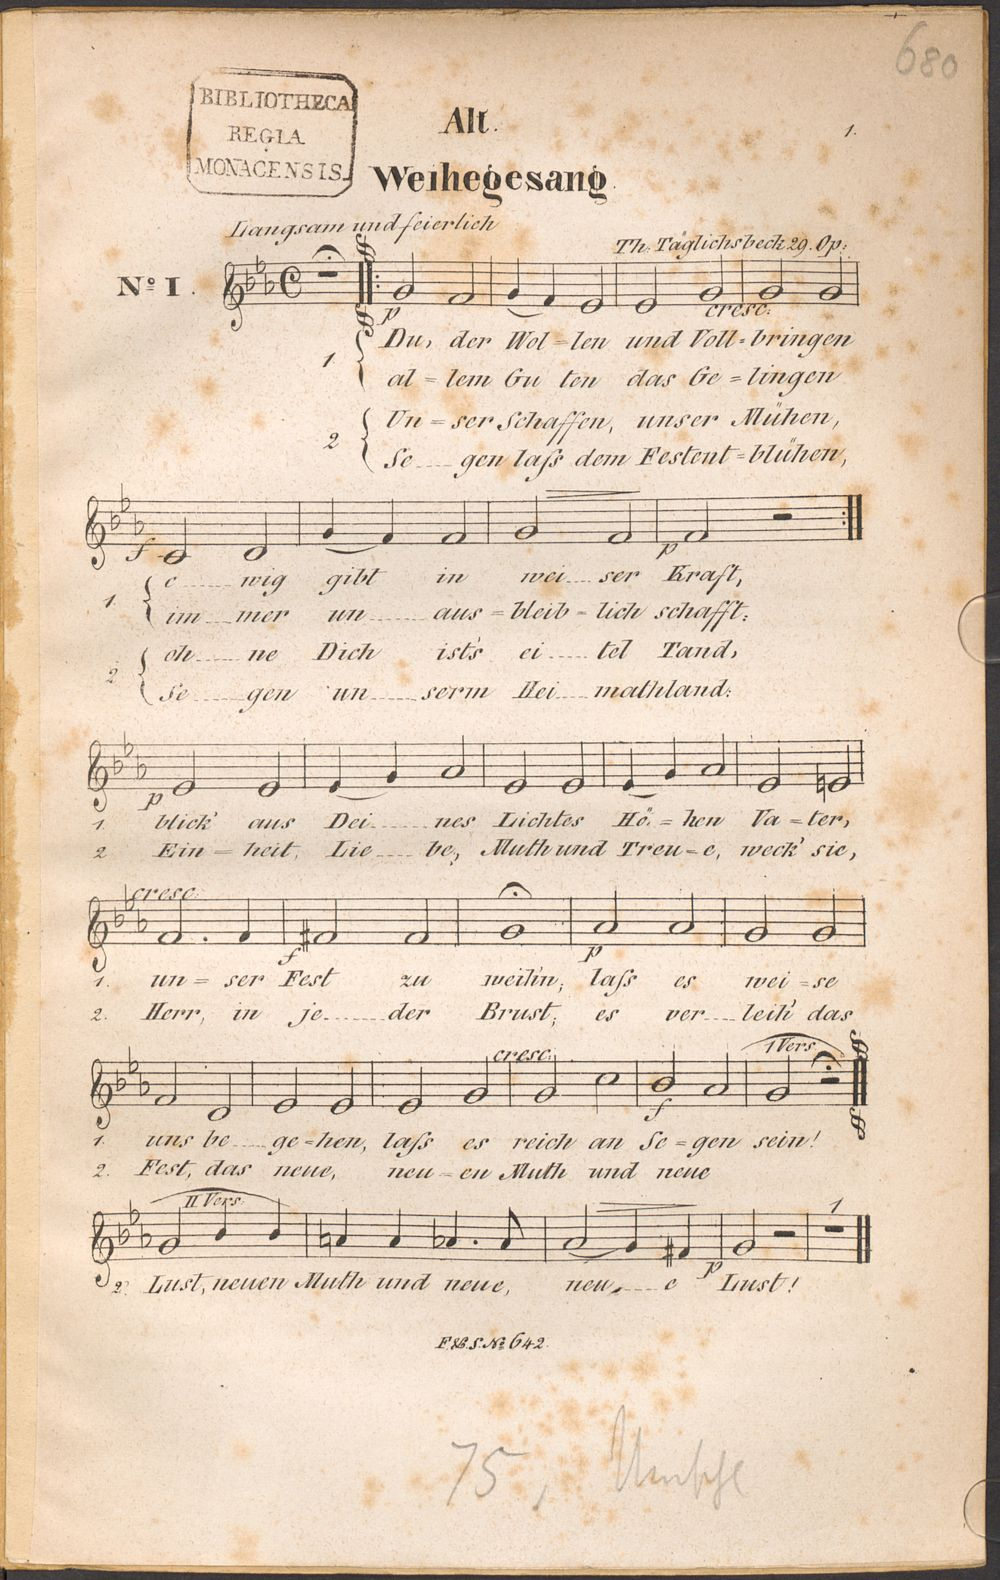 680
BIBLIOTHECA
REGIA
MONACENSIS.
Alt.
1.
Weihegesang.
Langsam und feierlich
Th. Täglichsbeck 29. Op:
No. I.
p cresc:
1 Du, der Wol-len und Voll-bringen
al-lem Gu ten das Ge-lingen
2 Un-ser Schaffen, unser Mühen,
Se gen laſs dem Festent-blühen,
f p
1 e wig gibt in wei ser Kraft,
im mer un aus-bleib-lich schafft:
2 oh ne Dich ist's ei tel Tand,
Se gen un serm Hei mathland:
p
1. blick' aus Dei nes Lichtes Hö-hen Va-ter,
2 Ein-heit, Lie be, Muth und Treu-e, weck' sie,
cresc:
f p
1. un-ser Fest zu weih'n, laſs es wei-se
2. Herr, in je der Brust, es ver leih' das
cresc: 1 Vers
f
1. uns be ge-hen, laſs es reich an Se-gen sein!
2. Fest, das neue, neu-en Muth und neue
II Vers. 1
p
2. Lust, neuen Muth und neue, neu e Lust!
F.&B.S. No. 642.
75,